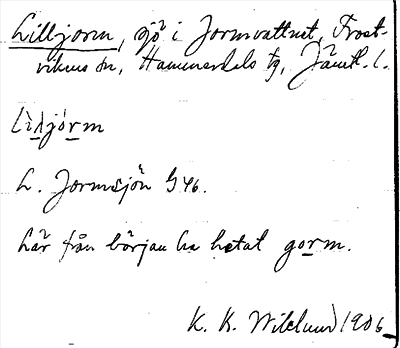 Lilljorm, sjö i Jormvattnet, Frost-
vikens sn, Hammerdals tg, Jämtl. l.
Lìljórm
L. Jormsjön G 46.
Lär från början ha hetat gorm.
K. B. Wiklund 1906